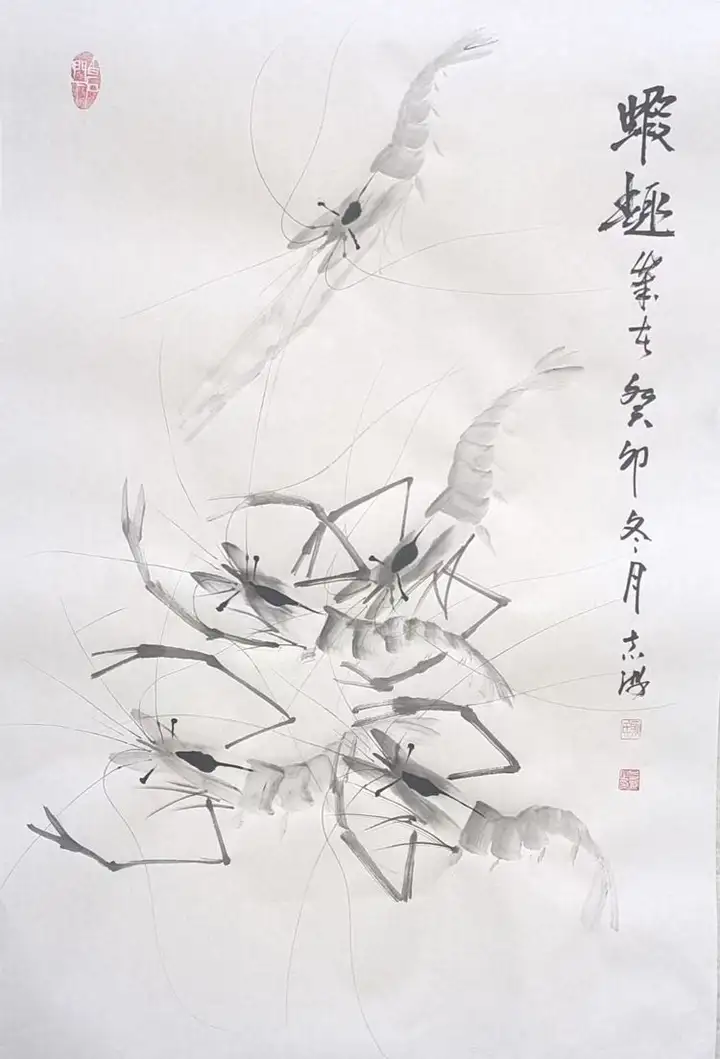 蝦趣
岁在癸卯冬月志鴻